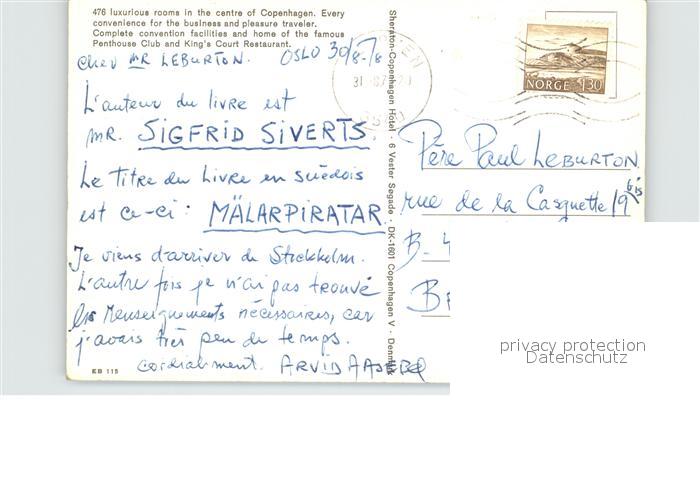 476 luxurious rooms in the centre of Copenhagen. Every
convenience for the business and pleasure traveler.
Complete convention facilities and home of the famous
Penthouse Club and King's Court Restaurant.
Cher MR LEBURTON. OSLO 30/8-78
L'auteur du livre est
MR. SIGFRID SIVERTS.
Le Titre du Livre en suédois
est ce-ci: MÄLARPIRATAR
Je viens d'arriver de Stockholm.
L'autre fois je n'ai pas trouvé
les Renseignements nécessaires, car
j'avais très peu de temps.
Cordialement. ARVID
KB 115
Sheraton-Copenhagen Hotel · 6 Vester Søgade · DK-1601 Copenhagen V · Denmark
NORGE 130
Père Paul LEBURTON
rue de la Casquette 19 bis
B-4
privacy protection
Datenschutz